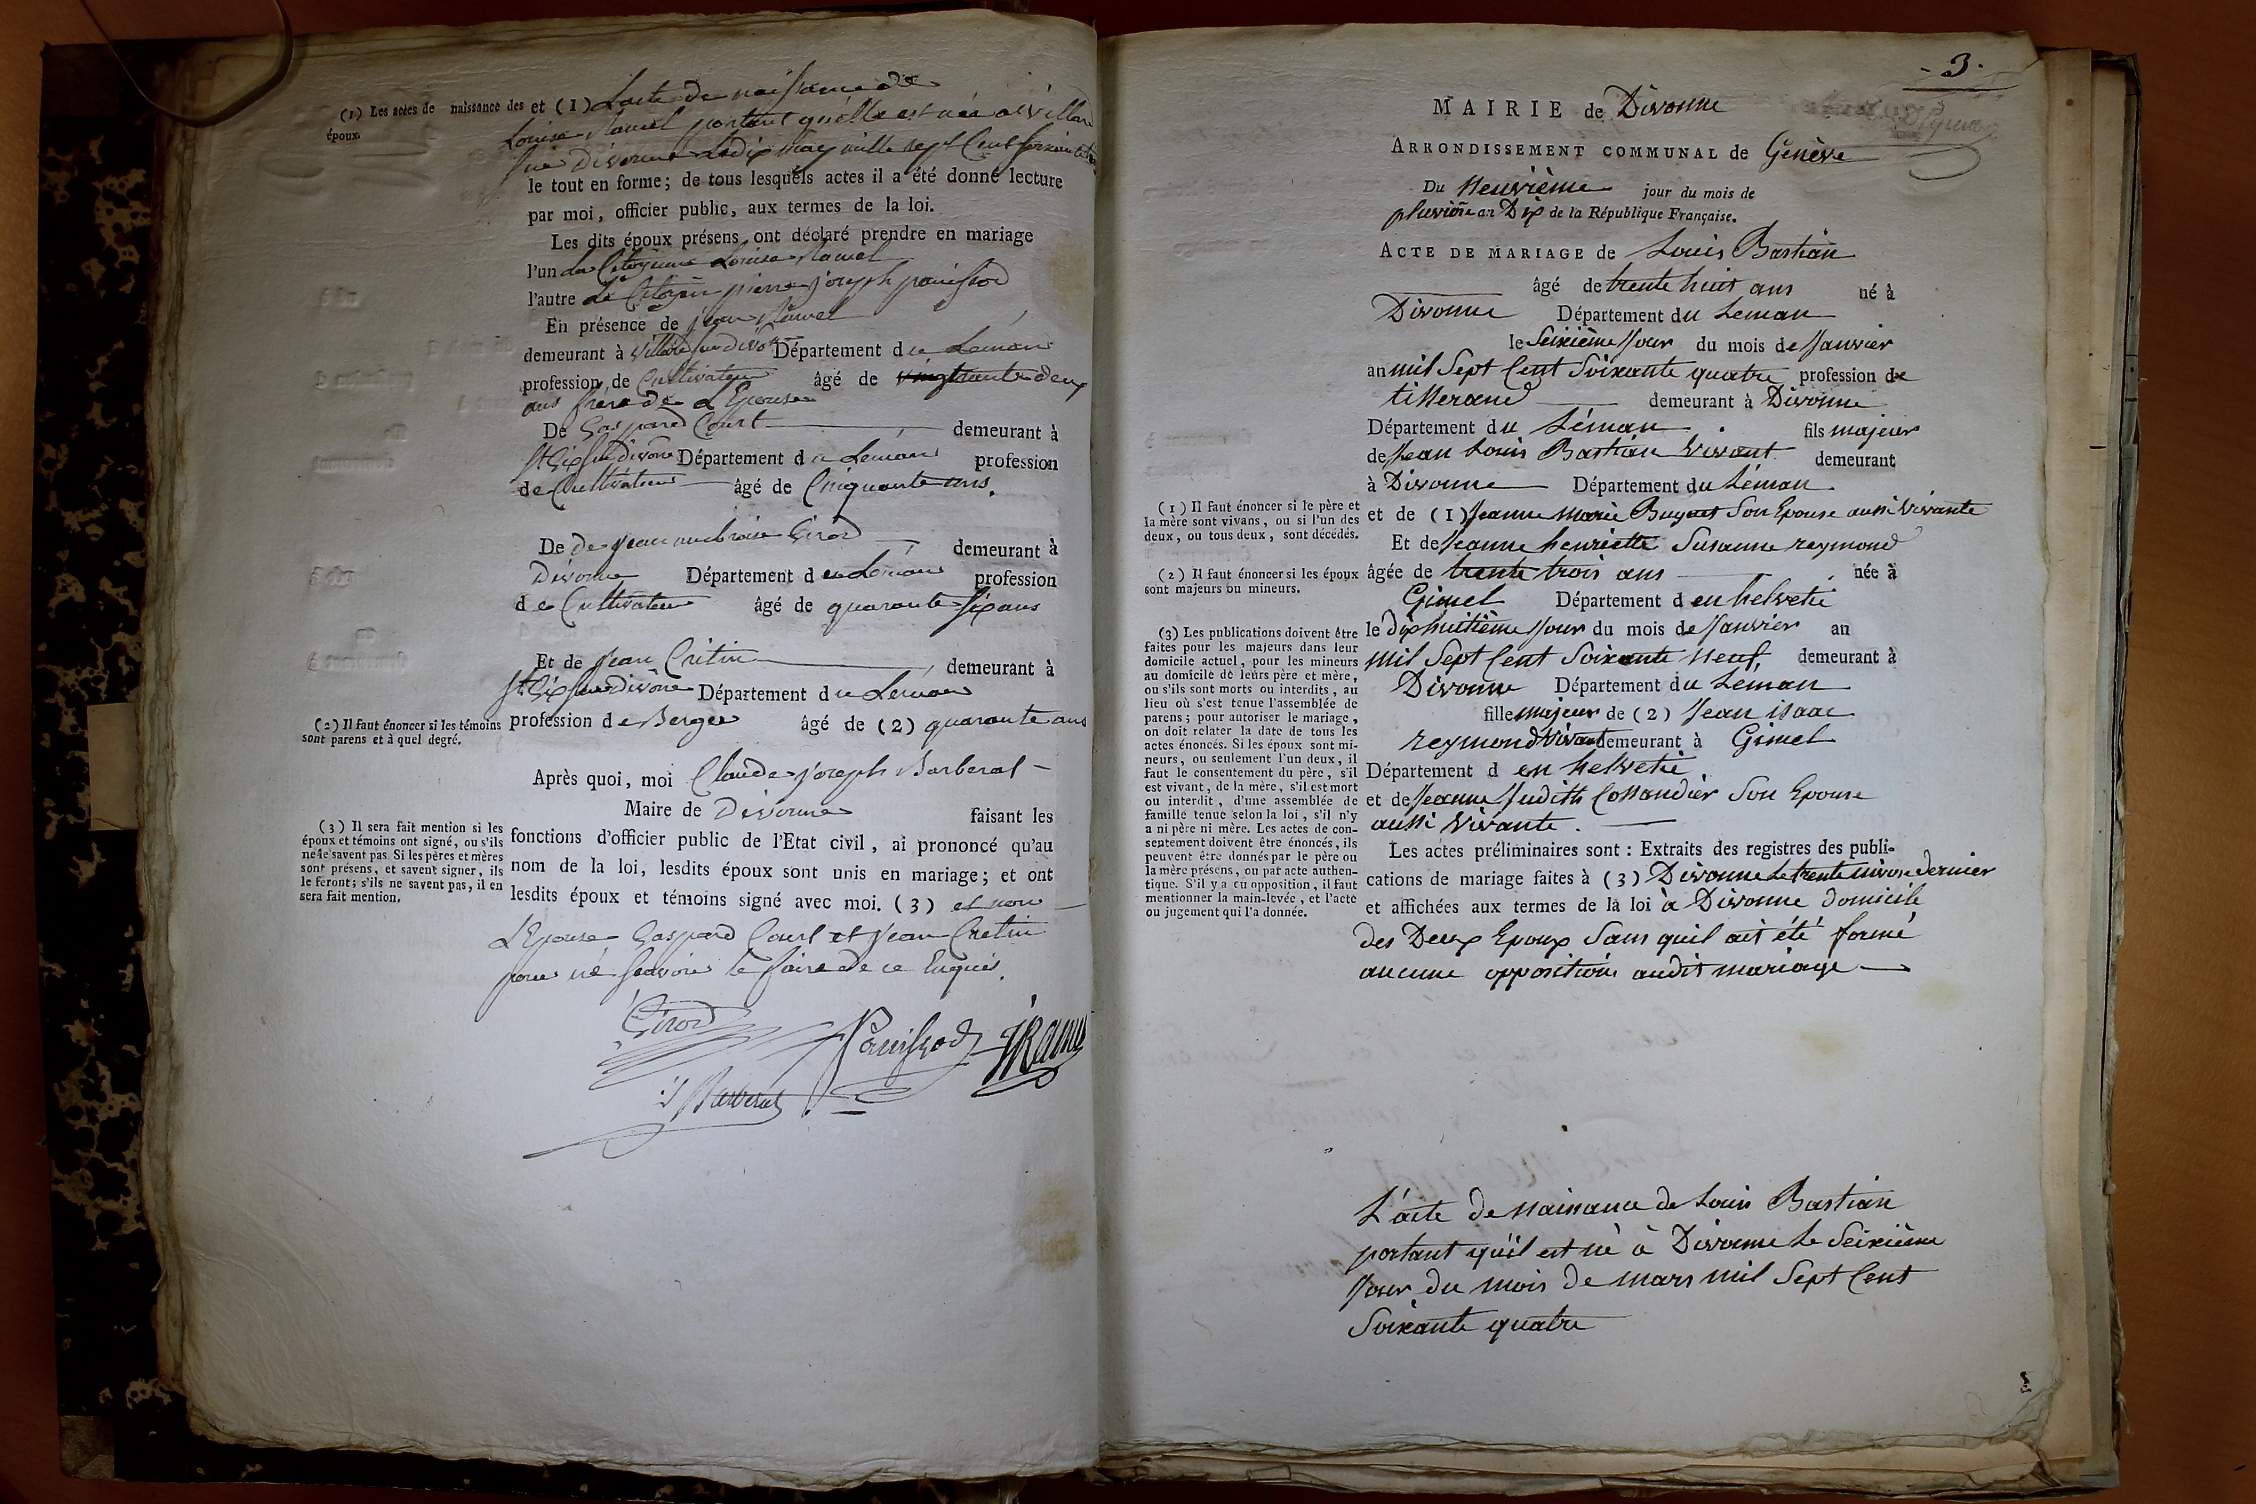 (1) Les actes de naissance des époux.
et (1) Lacte de naissance de
Louise Ramel portant quelle est née a Villard
sur Divonne Ledix may mille sept Cent soixante
le tout en forme; de tous lesquels actes il a été donné lecture
par moi, officier public, aux termes de la loi.
Les dits époux présens ont déclaré prendre en mariage
l'un La Citoyenne Louise Ramel
l'autre Le Citoyen pierre joseph panissod
En présence de jean Ramel
demeurant à Villard sur Divone Département du Léman
profession de Cultivateur âgé de trente deux
ans frère de L'Epouse
De Gaspard Court demeurant à
St Gix sur Divone Département du Léman profession
de Cultivateur âgé de Cinquante ans.
De de jean ambroise Girod demeurant à
Divonne Département du Léman profession
de Cultivateur âgé de quarante six ans
Et de jean Crétin demeurant à
St Gix sur Divone Département du Léman
(2) Il faut énoncer si les témoins
sont parens et à quel degré.
profession de Berger âgé de (2) quarante ans
Après quoi, moi Claude joseph Barberat
Maire de Divonne faisant les
(3) Il sera fait mention si les
époux et témoins ont signé, ou s'ils
ne le savent pas. Si les pères et mères
sont présens, et savent signer, ils
le feront; s'ils ne savent pas, il en
sera fait mention.
fonctions d'officier public de l'Etat civil, ai prononcé qu'au
nom de la loi, lesdits époux sont unis en mariage; et ont
lesdits époux et témoins signé avec moi. (3) et non
L'Epouse Gaspard Court et jean Cretin
pour né scavoir le faire de ce Enquis.
Girod
Panissod
JRamel
Barberat
- 3 -
MAIRIE de Divonne
ARRONDISSEMENT COMMUNAL de Genève
Du Neuvième jour du mois de
pluviôse an Dix de la République Française.
ACTE DE MARIAGE de Louis Bastian
âgé de trente huit ans né à
Divonne Département du Leman
le Seixième Jour du mois de Janvier
an mil Sept Cent Soixante quatre profession de
tisserand demeurant à Divonne
Département du Léman fils majeur
de Jean Louis Bastian Vivant demeurant
à Divonne Département du Léman
(1) Il faut énoncer si le père et
la mère sont vivans, ou si l'un des
deux, ou tous deux, sont décédés.
et de (1) Jeanne Marie Buguet Son Epouse aussi Vivante
Et de Jeanne henriette Susanne reymond
(2) Il faut énoncer si les époux
sont majeurs ou mineurs.
âgée de trente trois ans née à
Gimel Département d en helvetie
le dixhuitième Jour du mois de Janvier an
mil Sept Cent Soixante Neuf, demeurant à
Divonne Département du Leman
fille majeur de (2) Jean isaac
reymond Vivant demeurant à Gimel
Département d en helvetie
et de Jeanne Judith Cossandier Son Epouse
aussi Vivante.
(3) Les publications doivent être
faites pour les majeurs dans leur
domicile actuel, pour les mineurs
au domicile de leurs père et mère,
ou s'ils sont morts ou interdits, au
lieu où s'est tenue l'assemblée de
parens; pour autoriser le mariage,
on doit relater la date de tous les
actes énoncés. Si les époux sont mi-
neurs, ou seulement l'un deux, il
faut le consentement du père, s'il
est vivant, de la mère, s'il est mort
ou interdit, d'une assemblée de
famille tenue selon la loi, s'il n'y
a ni père ni mère. Les actes de con-
sentement doivent être énoncés, ils
peuvent être donnés par le père ou
la mère présens, ou par acte authen-
tique. S'il y a eu opposition, il faut
mentionner la main-levée, et l'acte
ou jugement qui l'a donnée.
Les actes préliminaires sont : Extraits des registres des publi-
cations de mariage faites à (3) Divonne Le trente nivose dernier
et affichées aux termes de la loi à Divonne domicile
des Deux Epoux Sans quil ait été formé
aucune opposition audit mariage
L'acte de naissance de Louis Bastian
portant qu'il est né à Divonne Le Seixième
Jour du mois de mars mil Sept Cent
Soixante quatre